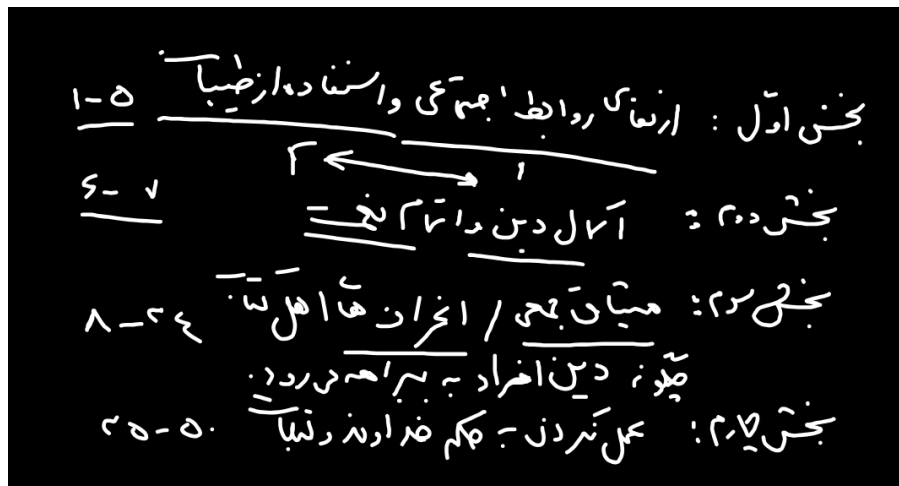 بخش اول: ارتقای روابط اجتماعی و استفاده از طیبات ۱-۵
۲ ۱
بخش دوم: اکمال دین و اتمام نعمت ۶-۷
بخش سوم: میثاق جمعی / انحراف های اهل کتاب ۸-۲۴
چگونه دین افراد به بیراهه می رود.
بخش چهارم: عمل نکردن به حکم خداوند و تبعات ۲۵-۵۰